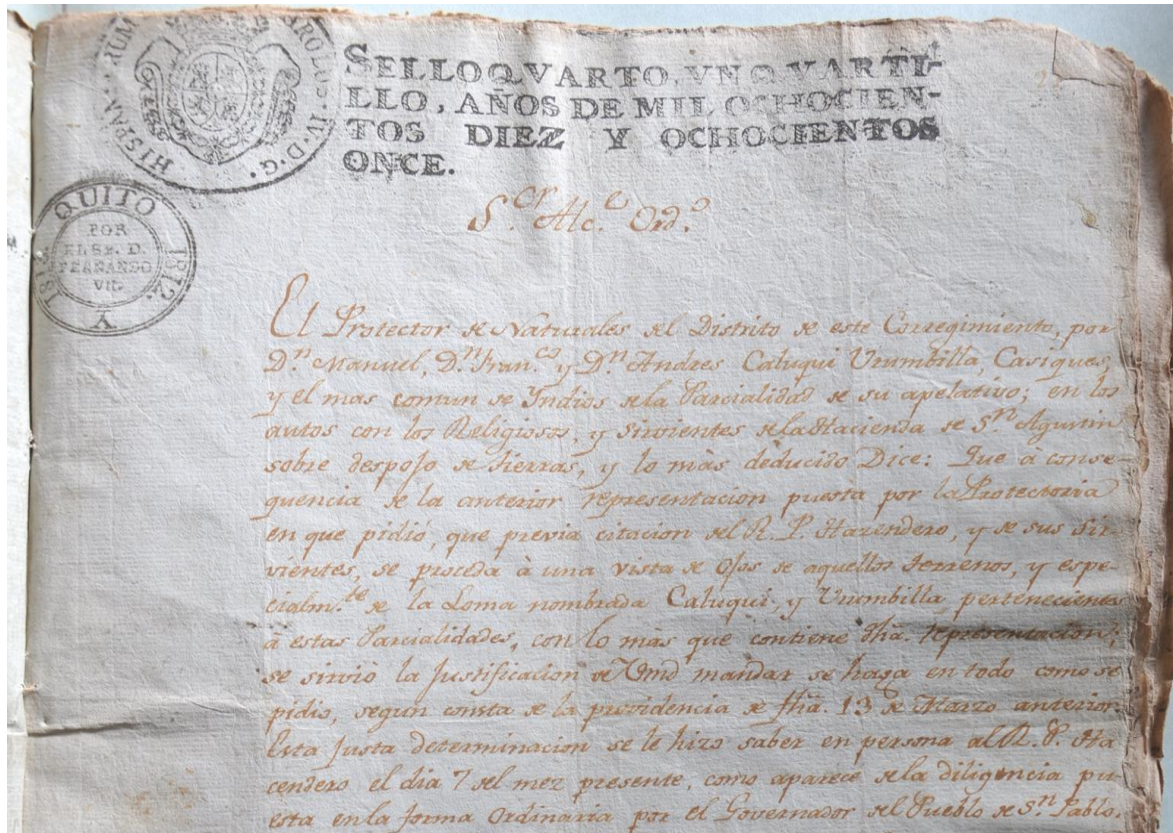 HISPAN · RUM
CAROLUS · IV · D · G ·
SELLO QVARTO, VN QVARTI-
LLO, AÑOS DE MIL OCHOCIEN-
TOS DIEZ Y OCHOCIENTOS
ONCE.
QUITO
1812. Y
POR
EL SR. D.
FERNANDO
VII.
S.or Alc.e Ord.o
El Protector de Naturales del Distrito de este Corregimiento, por
D.n Manuel, D.n Fran.co y D.n Andres Caluqui Vrumbilla, Casiques,
y el mas comun de Yndios dela Parcialidad de su apelativo; en los
autos con los Religiosos, y Sirvientes dela Hacienda de S.n Agustin
sobre despojo de tierras, y lo màs deducido Dice: Que à conse-
quencia de la anterior representacion puesta por la Protectoria
en que pidiò, que previa citacion del R. P. Hazendero, y de sus Sir-
vientes, se proceda à una vista de ojos de aquellos terrenos, y espe-
cialm.te de la Loma nombrada Caluqui, y Vrumbilla pertenecient
à estas Parcialidades, con lo màs que contiene dha. representacion;
se sirviò la Justificacion de Vmd mandar se haga en todo como se
pidio, segun consta de la providencia de fha. 13 de Marzo anterior
Esta justa determinacion se le hizo saber en persona al R. P. Ha
cendero el dia 7 del mez presente, como aparece dela diligencia pu
esta en la forma Ordinaria por el Governador del Pueblo de S.n Pablo.